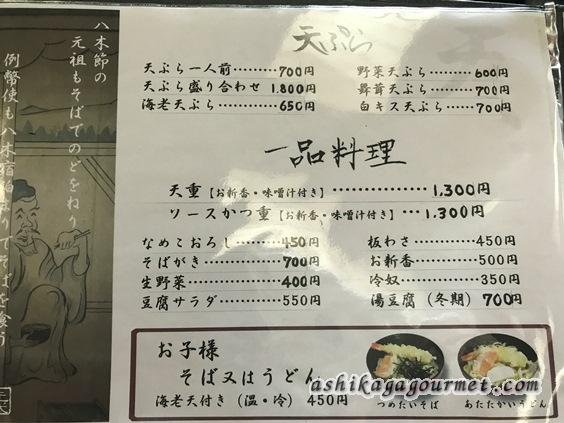 八木節の
元祖もそばでのどをねり
例幣使も八木宿泊
でそばを喰う
天ぷら
天ぷら一人前………700円
天ぷら盛り合わせ 1.800円
海老天ぷら…………650円
野菜天ぷら………600円
舞茸天ぷら………700円
白キス天ぷら……700円
一品料理
天重【お新香・味噌汁付き】……………1.300円
ソースかつ重【お新香・味噌汁付き】…1.300円
なめこおろし………450円
そばがき……………700円
生野菜………………400円
豆腐サラダ…………550円
板わさ………………450円
お新香………………500円
冷奴…………………350円
湯豆腐(冬期)700円
お子様
そば又はうどん
海老天付き(温・冷)450円
つめたいそば
あたたかいうどん
ashikagagourmet.com